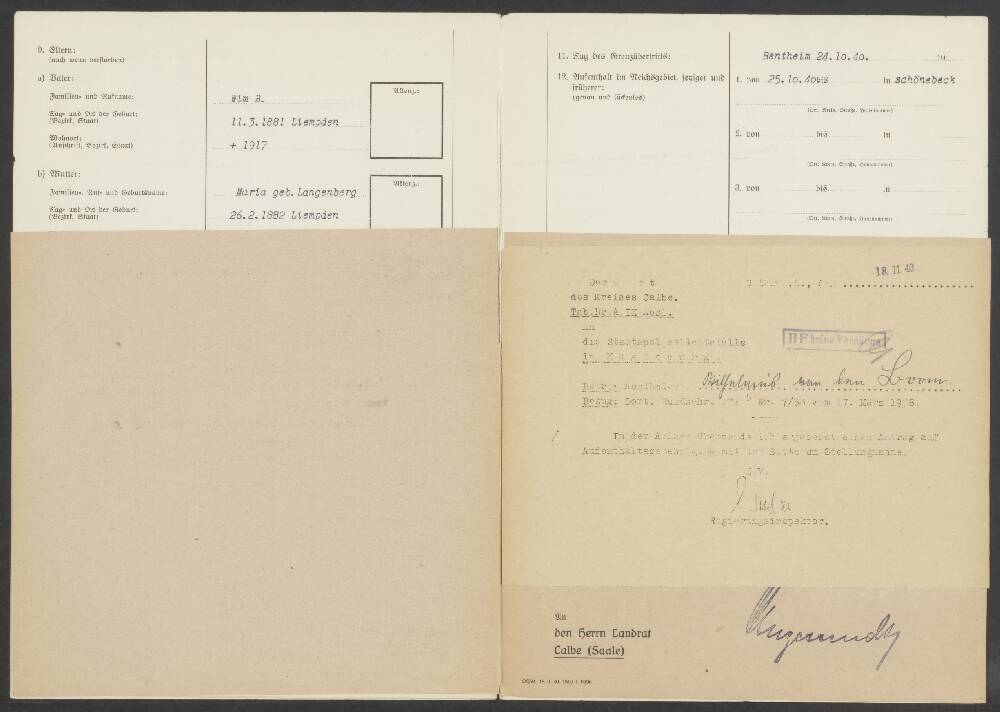 9. Eltern:
(auch wenn verstorben)
a) Vater:
Familien- und Rufname:
Wim B.
Aktenz.:
Tag- und Ort der Geburt:
(Bezirk, Staat)
11.3.1881 Liempden
Wohnort:
(Anschrift, Bezirk, Staat)
+ 1917
b) Mutter:
Familien-, Ruf- und Geburtsname:
Maria geb. Langenberg
Aktenz.:
Tag- und Ort der Geburt:
(Bezirk, Staat)
26.2.1882 Liempden
11. Tag des Grenzübertritts:
Bentheim 24.10.40. 19
12. Aufenthalt im Reichsgebiet, jetziger und
früherer:
(genau und lückenlos)
1. von 25.10.40 bis in Schönebeck
(Ort, Kreis, Straße, Hausnummer)
2. von bis in
(Ort, Kreis, Straße, Hausnummer)
3. von bis in
(Ort, Kreis, Straße, Hausnummer)
18. 11. 40
Der
des Kreises Calbe.
Tgb.Nr. A IX Ausl.
An
die Staatspolizeileitstelle
in Magdeburg.
II F keine Vorgänge
Betr.: Ausländer Wilhelmus van den Boom
Bezug: Dort. Rundschr. vom 17. März 1938.
In der Anlage übersende ich ergebenst einen Antrag auf
Aufenthaltsgenehmigung mit der Bitte um Stellungnahme.
I.V.
Regierungsinspektor.
An
den Herrn Landrat
Calbe (Saale)